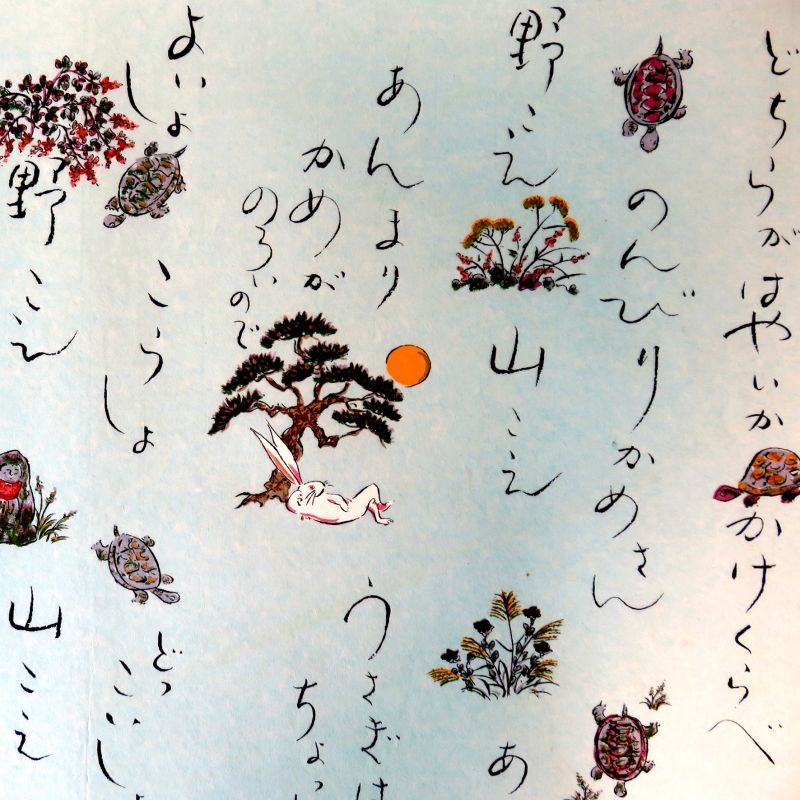 どちらがはやいかかけくらべ
のんびりかめさん
野こえ 山こえ あ
あんまり うさぎは
かめが ちょっ
のろいので
よいしょ こらしょ どっこいしょ
野こえ 山こえ